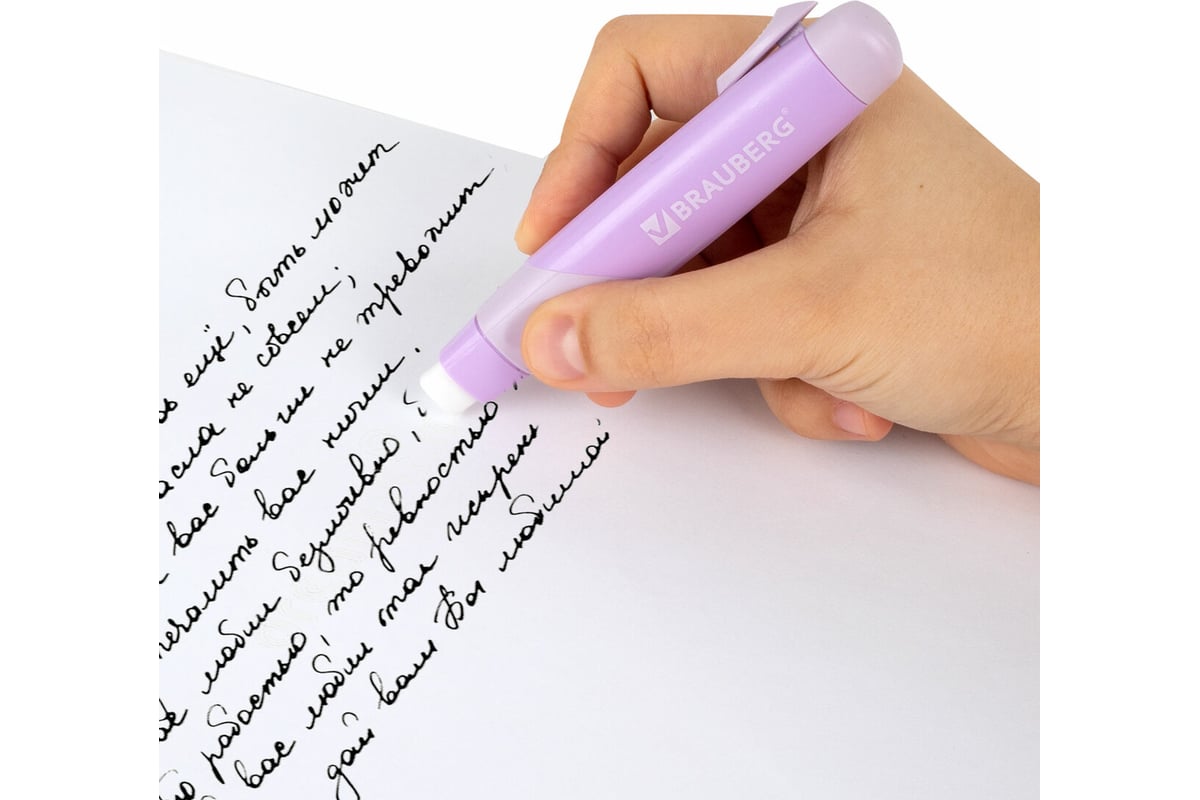 ещё, быть может
не совсем;
вас больше не тревожит
вас ничем.
любил безмолвно,
радостью, то ревностью
вас любил так искрен
дай вам Бог любимой
BRAUBERG®